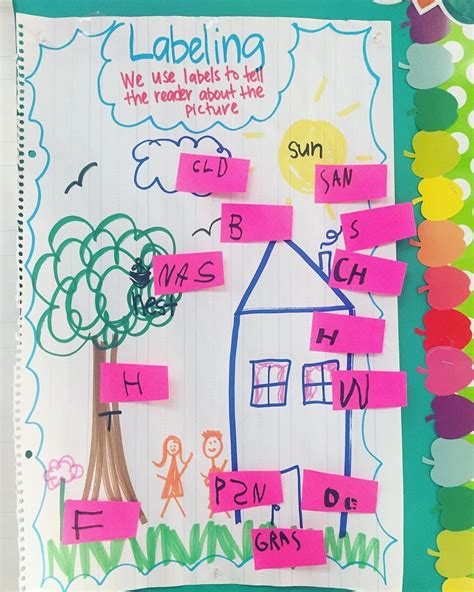 Labeling
We use labels to tell
the reader about the
picture
sun
CLD
SAN
B
S
NAS
CH
nest
H
H
W
T
PZN
De
F
GRAS